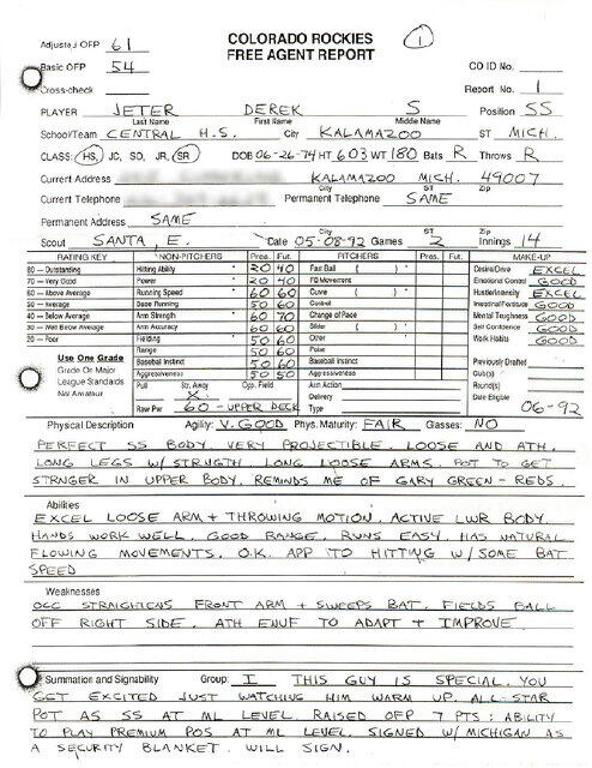 COLORADO ROCKIES
FREE AGENT REPORT
1
Adjusted OFP 61
Basic OFP 54
CO ID No.
Cross-check
Report No. 1
PLAYER JETER DEREK S Position SS
Last Name First Name Middle Name
School/Team CENTRAL H.S. City KALAMAZOO ST MICH.
CLASS: HS, JC, SO, JR, SR DOB 06-26-74 HT 603 WT 180 Bats R Throws R
Current Address KALAMAZOO MICH. 49007
City ST Zip
Current Telephone Permanent Telephone SAME
Permanent Address SAME
City ST Zip
Scout SANTA, E. Date 05-08-92 Games 2 Innings 14
RATING KEY NON-PITCHERS Pres. Fut. PITCHERS Pres. Fut. MAKE-UP
80 — Outstanding Hitting Ability * 20 40 Fast Ball ( ) * Desire/Drive EXCEL
70 — Very Good Power * 20 40 FB Movement Emotional Control GOOD
60 — Above Average Running Speed * 60 60 Curve ( ) * Hustle/Intensity EXCEL
50 — Average Base Running 50 60 Control Intestinal Fortitude GOOD
40 — Below Average Arm Strength * 60 70 Change of Pace Mental Toughness GOOD
30 — Well Below Average Arm Accuracy 60 60 Slider ( ) * Self Confidence GOOD
20 — Poor Fielding * 50 60 Other * Work Habits GOOD
Range 50 60 Poise
Use One Grade Baseball Instinct 50 60 Baseball Instinct Previously Drafted
Grade On Major Aggressiveness 50 50 Aggressiveness Club(s)
League Standards Pull Str. Away Opp. Field Arm Action Round(s)
Not Amateur X Delivery Date Eligible
Raw Pwr 60 - UPPER DECK Type 06-92
Physical Description Agility: V. GOOD Phys. Maturity: FAIR Glasses: NO
PERFECT SS BODY. VERY PROJECTIBLE. LOOSE AND ATH.
LONG LEGS W/ STRNGTH. LONG LOOSE ARMS. POT TO GET
STRNGER IN UPPER BODY. REMINDS ME OF GARY GREEN - REDS.
Abilities
EXCEL LOOSE ARM + THROWING MOTION. ACTIVE LWR BODY.
HANDS WORK WELL. GOOD RANGE. RUNS EASY. HAS NATURAL
FLOWING MOVEMENTS. O.K. APP TO HITTING W/ SOME BAT
SPEED
Weaknesses
OCC STRAIGHTENS FRONT ARM + SWEEPS BAT. FIELDS BALL
OFF RIGHT SIDE. ATH ENUF TO ADAPT + IMPROVE.
Summation and Signability Group: I THIS GUY IS SPECIAL. YOU
GET EXCITED JUST WATCHING HIM WARM UP. ALL-STAR
POT AS SS AT ML LEVEL. RAISED OFP 7 PTS: ABILITY
TO PLAY PREMIUM POS AT ML LEVEL. SIGNED W/ MICHIGAN AS
A SECURITY BLANKET. WILL SIGN.